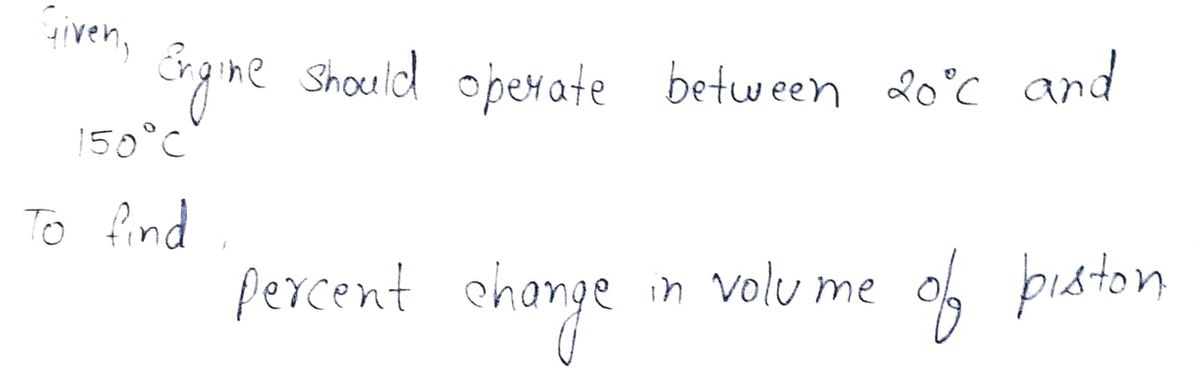 Given,
Engine should operate between 20°C and
150°C
To find,
percent change in volume of piston